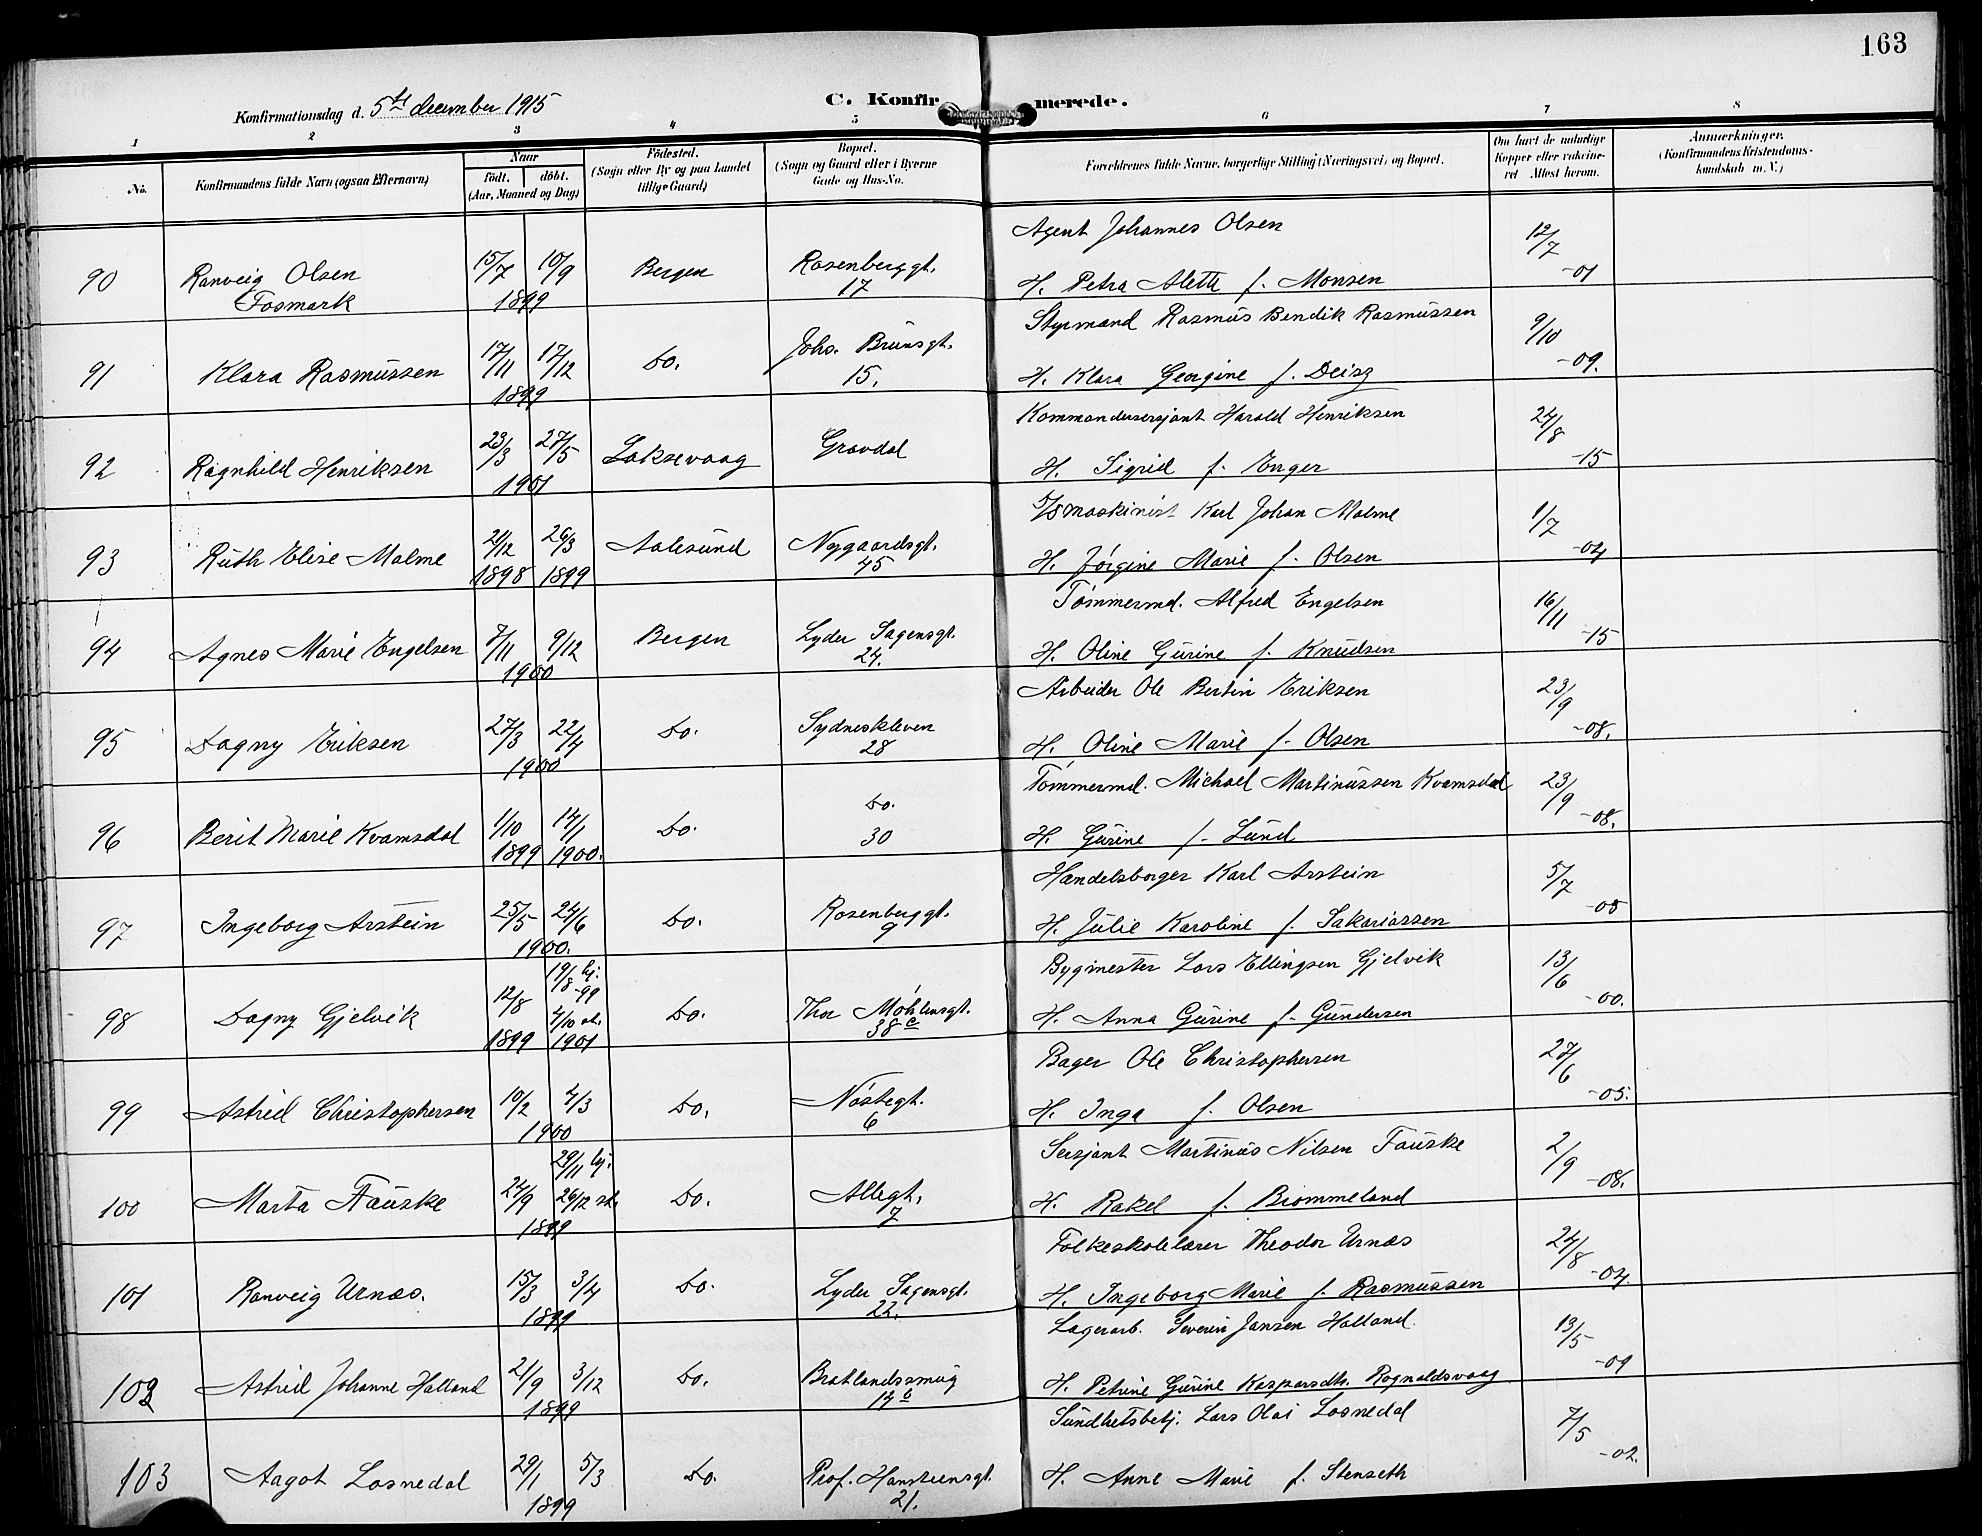 163
Konfirmationsdag d. 5te december 1915
C. Konfirmerede.
1 2 3 4 5 6 7 8
No.
Konfirmandens fulde Navn (ogsaa Efternavn)
Naar
født. døbt.
(Aar, Maaned og Dag)
Födested.
(Sogn eller By og paa Landet
tillige Gaard)
Bopæl.
(Sogn og Gaard eller i Byerne
Gade og Hus-No.
Forældrenes fulde Navne, borgerlige Stilling (Næringsvei) og Bopæl.
Om havt de naturlige
Kopper eller vakcine-
ret Attest herom.
Anmærkninger.
(Konfirmandens Kristendoms-
kundskab m. V.)
Agent Johannes Olsen
90 Ranveig Olsen 15/7 10/9 Bergen Rosenberggt. 12/7
Fosmark 1899 17 H. Petra Alette f. Monsen -01
Styrmand Rasmus Bendik Rasmussen
91 Klara Rasmussen 17/11 17/12 Do. Johs. Brunsgt. 9/10
1899 15. H. Klara Georgine f. Deisz -09.
Kommandersersjant Harald Henriksen
92 Ragnhild Henriksen 23/3 27/5 Laksevaag Gravdal 24/8
1901 H. Sigrid f. Enger -15
D/Smaskinist Karl Johan Malme
93 Ruth Elise Malme 21/12 26/3 Aalesund Nygaardsgt. 1/7
1898 1899 45 H. Jørgine Marie f. Olsen -04
Tømmermd. Alfred Engelsen
94 Agnes Marie Engelsen 7/11 9/12 Bergen Lyder Sagensgt. 16/11
1900 24. H. Oline Gurine f. Knudsen -15
Arbeider Ole Bertin Eriksen
95 Dagny Eriksen 27/3 22/4 Do. Sydneskleven 23/9
1900 28 H. Oline Marie f. Olsen -08.
Tömmermd. Michael Martinussen Kvamsdal
96 Berit Marie Kvamsdal 1/10 14/1 Do. Do. 23/9
1899 1900. 30 H. Gurine f. Lund -08.
Handelsborger Karl Arstein
97 Ingeborg Arstein 25/5 24/6 Do. Rosenberggt. 5/7
1900. 9 H. Julie Karoline f. Sakariassen -08
19/8 hj. -99
Bygmester Lars Ellingsen Gjelvik
98 Dagny Gjelvik 12/8 4/10 st. Do. Thor Møhlensgt. 13/6
1899 1901 38c H. Anna Gurine f. Gundersen -00.
Bager Ole Christophersen
99 Astrid Christophersen 10/2 4/3 Do. Nøstegt. 27/6
1900 6 H. Inga f. Olsen -05.
29/11 hj.
Sersjant Martinus Nilsen Fauske
100 Marta Fauske 24/9 26/12 st. Do. Allegt. 2/9
1899 7 H. Rakel f. Brommeland -08.
Folkeskolelærer Theodor Urnæs
101 Ranveig Urnæs. 15/3 3/4 Do. Lyder Sagensgt. 24/8
1899 22. H. Ingeborg Marie f. Rasmussen -04.
Lagerarb. Severin Jansen Halland.
102 Astrid Johanne Halland 21/9 3/12 Do. Bratlandssmug 13/5
1899 14b H. Petrine Gurine Kasparsdtr. Rognaldsvaag -09
Sundhetsbetj. Lars Olai Losnedal
103 Aagot Losnedal 29/1 5/3 Do. Prof. Hansteensgt. 7/5
1899 21. H. Anne Marie f. Stenseth -02.